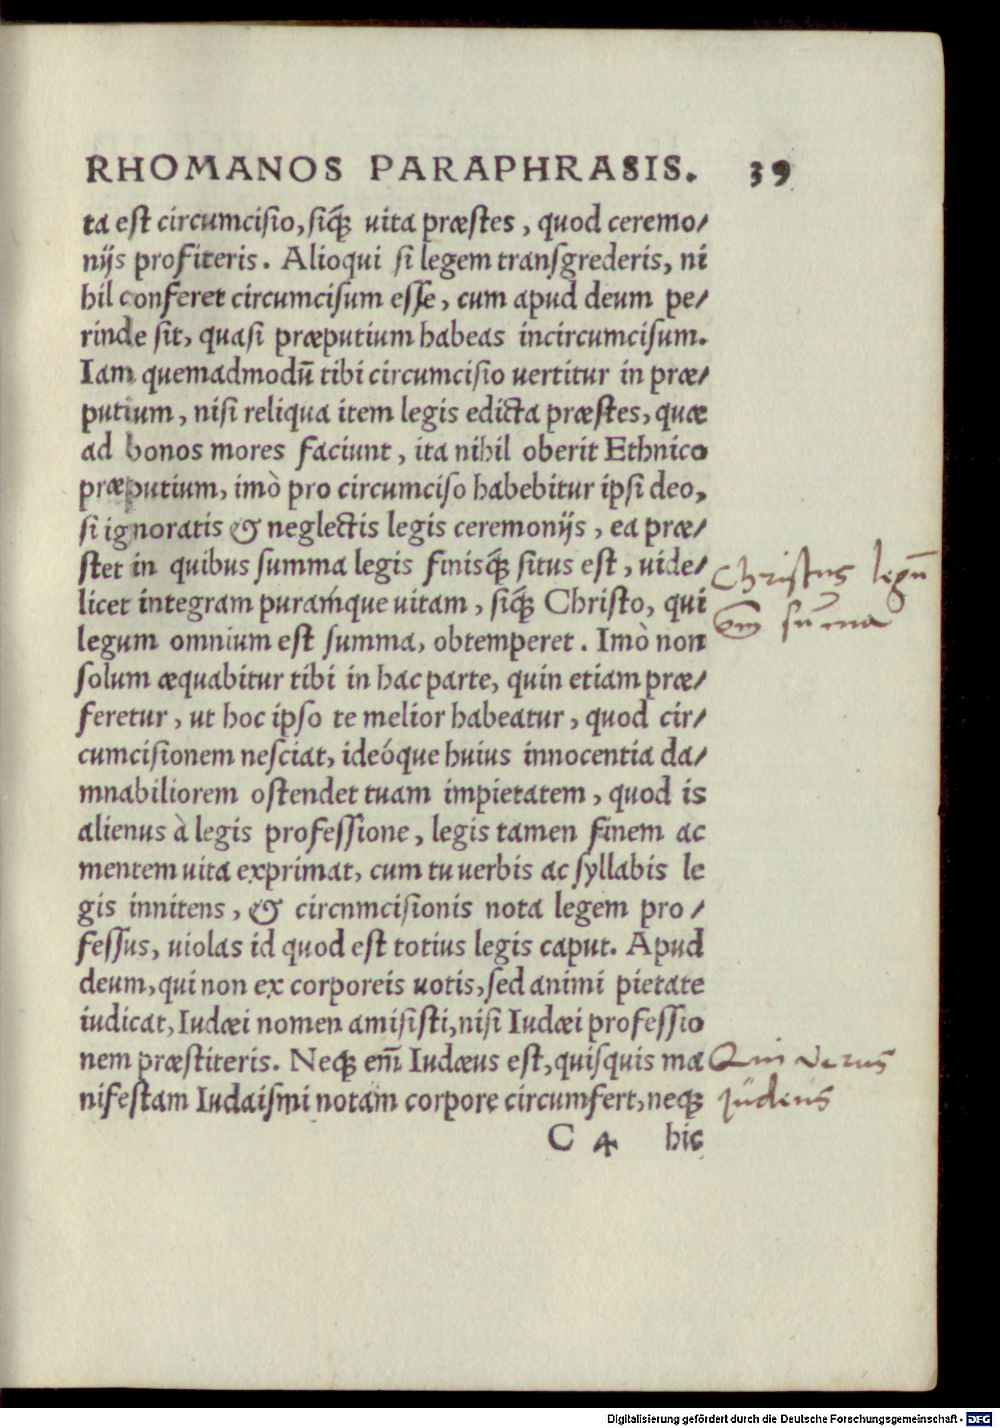 RHOMANOS PARAPHRASIS. 39
ta est circumcisio, siq́; uita præstes, quod ceremo/
nijs profiteris. Alioqui si legem transgrederis, ni
hil conferet circumcisum esse, cum apud deum pe/
rinde sit, quasi præputium habeas incircumcisum.
Iam quemadmodū tibi circumcisio uertitur in præ/
putium, nisi reliqua item legis edicta præstes, quæ
ad bonos mores faciunt, ita nihil oberit Ethnico
præputium, imò pro circumciso habebitur ipsi deo,
si ignoratis & neglectis legis ceremonijs, ea præ/
stet in quibus summa legis finisq́; situs est, uide/
licet integram puramq́ue uitam, siq́; Christo, qui
Christus legū
legum omnium est summa, obtemperet. Imò non
om̅ sum̅a
solum æquabitur tibi in hac parte, quin etiam præ/
feretur, ut hoc ipso te melior habeatur, quod cir/
cumcisionem nesciat, ideóque huius innocentia da/
mnabiliorem ostendet tuam impietatem, quod is
alienus à legis professione, legis tamen finem ac
mentem uita exprimat, cum tu uerbis ac syllabis le
gis innitens, & circnmcisionis nota legem pro/
fessus, uiolas id quod est totius legis caput. Apud
deum, qui non ex corporeis uotis, sed animi pietate
iudicat, Iudæi nomen amisisti, nisi Iudæi professio
nem præstiteris. Neq; em̅ Iudæus est, quisquis ma
Qui verus
nifestam Iudaismi notam corpore circumfert, neq;
judeus
C 4 hic
Digitalisierung gefördert durch die Deutsche Forschungsgemeinschaft - DFG